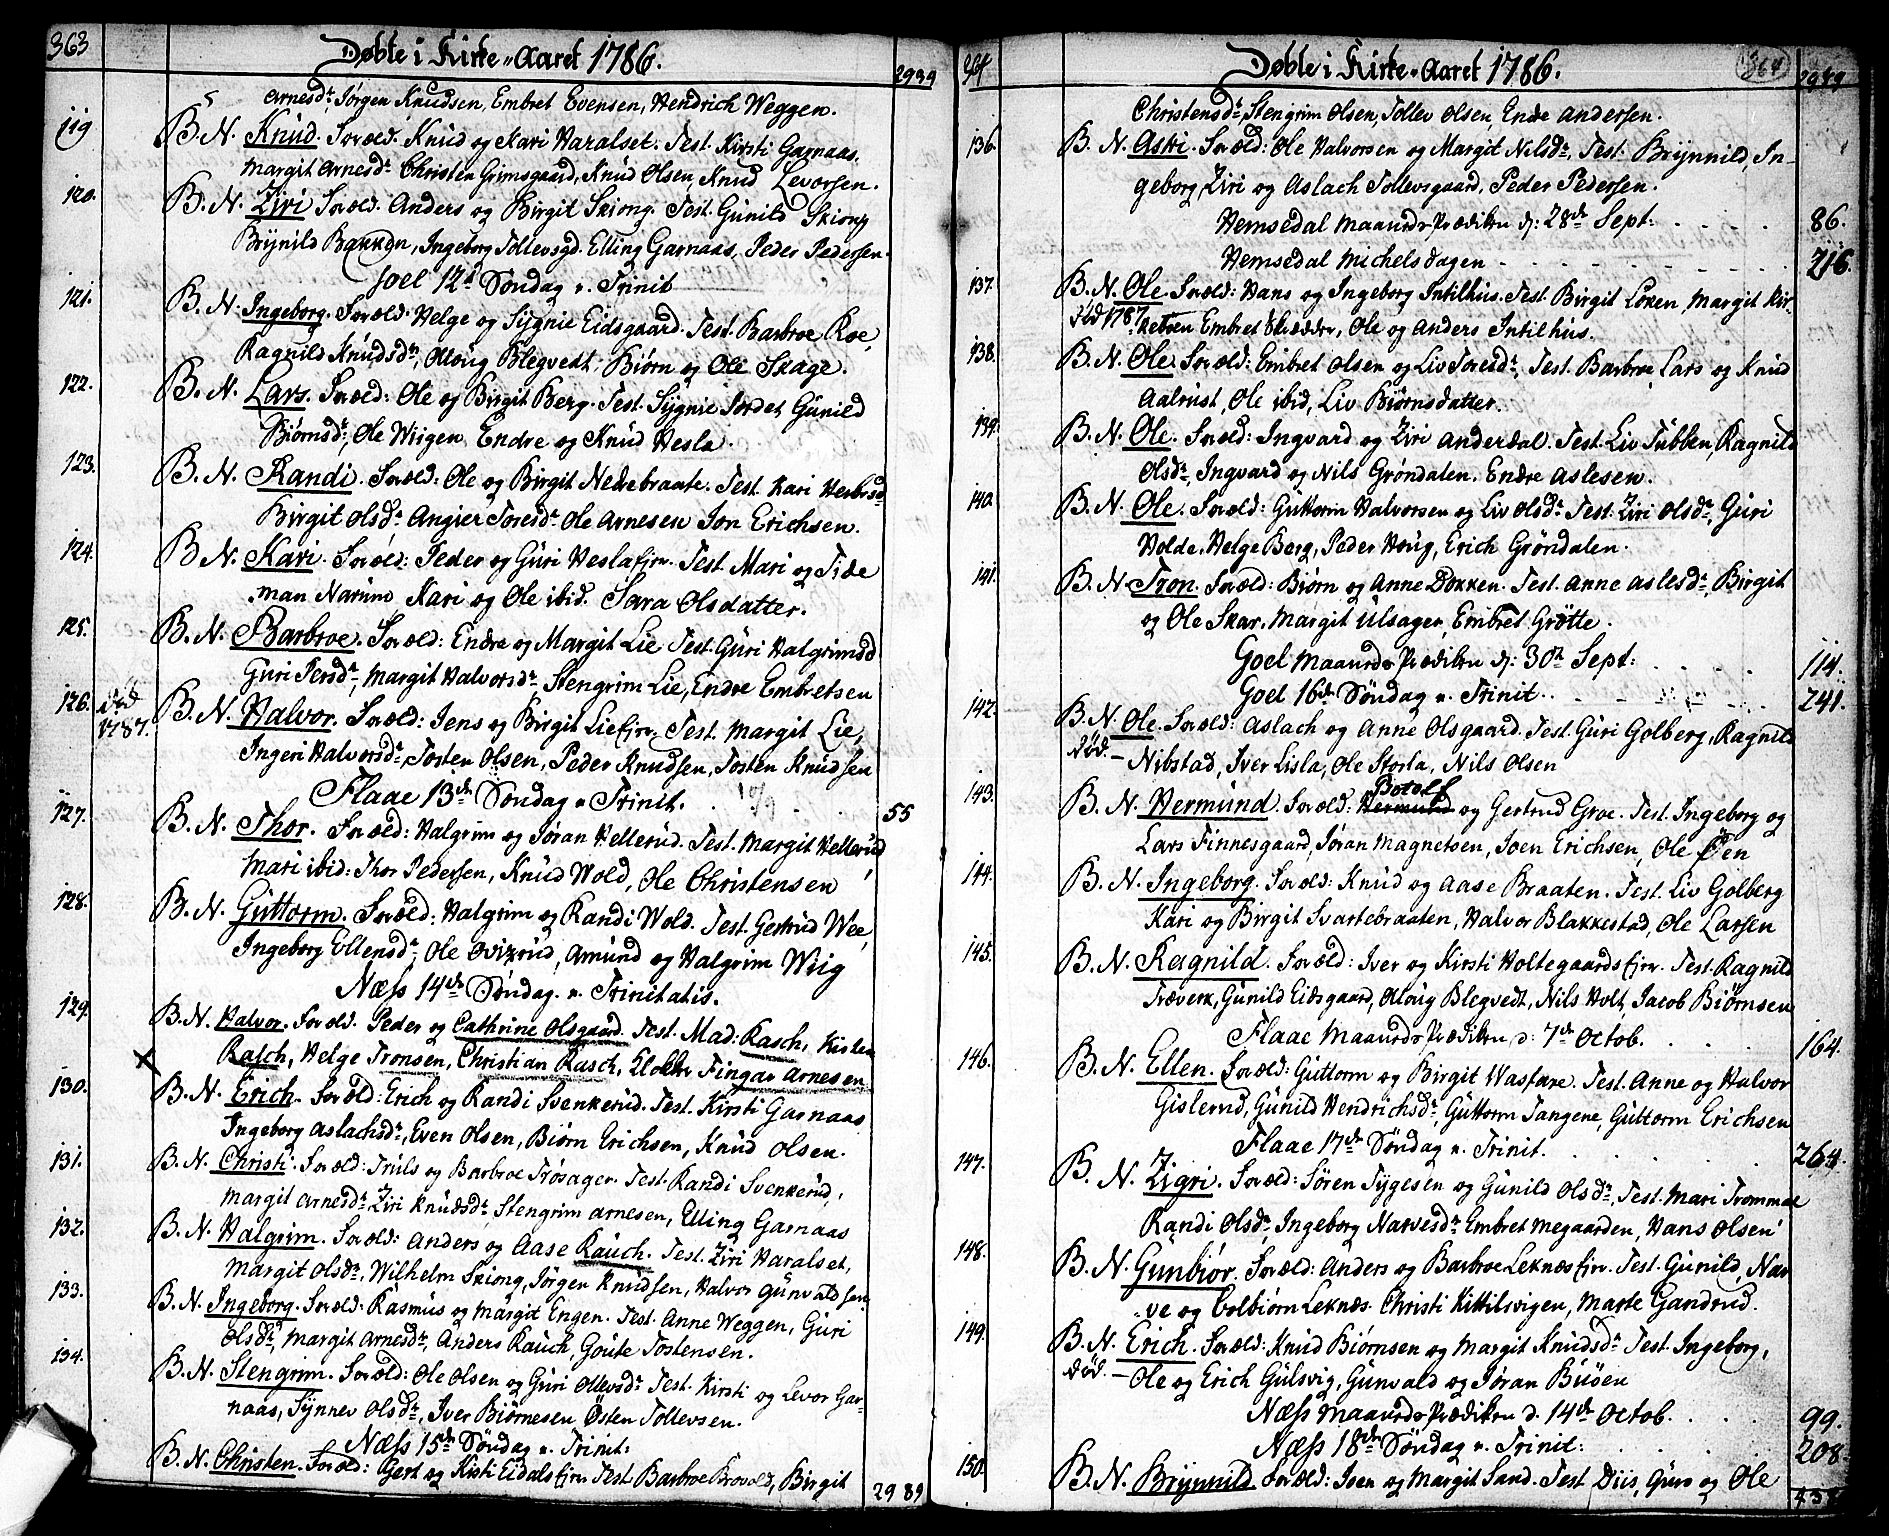 363
Døbte i Kirke-Aaret 1786.
2939
Arnesdr, Jørgen Knudsen, Embret Evensen, Hendrich Weggen.
119 B. N. Knud. Foræld. Knud og Kari Haralset. Test. Kirsti Garnaas,
Margit Arnesdr Christen Grimsgaard, Knud Olsen, Knud Levorsen.
120. B. N. Ziri Foræld. Anders og Birgit Skiong. Test. Gunild Skiong
Brynild Bakken, Ingeborg Tollevsgd. Elling Garnaas, Peder Pedersen.
Goel 12te Søndag p. Trinit
121. B. N. Ingeborg. Foræld: Helge og Sygnie Eidsgaard. Test. Barbroe Roe,
Ragnild Knudsdr, Olloug Blegvedt, Biørn og Ole Skage.
122. B. N. Lars. Foræld: Ole og Birgit Berg. Test. Sygnie Jordet Gunild
Biørnsdr, Ole Wiigen Endre og Knud Hesla.
123. B. N. Randi. Foræld: Ole og Birgit Nedrebraate. Test. Kari Herbrsd
Birgit Olsdr Angier Toresdr Ole Arnesen Jon Erichsen.
124. B. N. Kari. Foræld: Peder og Guri Heslaejer. Test. Mari og Tide
man Narum, Kari og Ole ibid. Sara Olsdatter.
125. B. N. Barbroe. Foræld: Endre og Margit Lie Test. Guri Halgrimsd
Guri Persdr, Margit Halvorsdr, Stengrim Lie, Endre Embretsen
126. død 1787. B. N. Halvor. Foræld: Jens og Birgit Lieejer. Test. Margit Lie,
Ingeri Halvorsdr, Tosten Olsen, Peder Knudsen, Tosten Knudsen
Flaae 13de Søndag p. Trinit.
55
127. B. N. Thor. Foræld: Halgrim og Jøran Hellerud. Test. Margit Hellerud
Mari ibid: Thor Pedersen, Knud Wold, Ole Christensen
128. B. N. Guttorm. Foræld: Halgrim og Randi Wold. Test. Gertrud Wee,
Ingeborg Ellensdr, Ole Qvizrud, Amund og Halgrim Wiig
Næss 14de Søndag. p. Trinitatis.
129. B. N. Halvor. Foræld. Peder og Cathrine Olsgaard. Test. Mad: Rasch, Kisten
Rasch, Helge Tronsen, Christian Rasch, Klokker Fingar Arnesen
130. B. N. Erich. Foræld: Erich og Randi Svenkerud. Test. Kirsti Garnaas
Ingeborg Aslachsdr, Even Olsen, Biørn Erichsen, Knud Olsen.
131. B. N. Christi. Foræld: Truls og Barbroe Trøsager. Test. Randi Svenkerud,
Margit Arnesdr Ziri Knudsdr Stengrim Arnesen, Elling Garnaas
132. B. N. Halgrim. Foræld: Anders og Aase Rauch. Test. Ziri Haralset,
Margit Olsdr, Wilhelm Skiong, Jørgen Knudsen, Halvor Gunvaldsen
133. B. N. Ingeborg. Foræld: Rasmus og Margit Engen. Test. Anne Weggen, Guri
Olsdr, Margit Arnesdr, Anders Rauch, Goute Tostensen.
134. B. N. Stengrim. Foræld: Ole Olsen og Guri Ollevsdr Test. Kirsti og Levor Gar-
naas, Synnev Olsdr, Iver Biørnesen Østen Tollevsen.
Næss 15de Søndag p. Trinit:
B. N. Christen. Foræld: Gert og Kisti Eidalsejer Test Barbroe Brovold, Birgit
2989
364
Døbte i Kirke-Aaret 1786.
364
2989
Christensdr, Stengrim Olsen, Tollev Olsen, Endre Andersen.
136. B. N. Aski. Foræld: Ole Halvorsen og Margit Nilsdr, Test. Brynnild, In-
geborg, Ziri og Aslach Tollevsgaard, Peder Pedersen.
Hemsedal Maaneds Prædiken d: 28de Sept: 86.
Hemsedal Michelsdagen 216.
137. B. N. Ole. Foræld: Hans og Ingeborg Intilhus. Test. Birgit Løken, Margit Kir-
død 1787. kebøen Embret Skrædder, Ole og Anders Intilhus.
138. B. N. Ole. Foræld: Embret Olsen og Liv Toresdr, Test. Barbroe, Lars og Knud
Aalrust, Ole ibid, Liv Biørnsdatter.
139. B. N. Ole. Foræld: Ingvard og Ziri Anderdal. Test. Liv Tubben, Ragnild
Olsdr, Ingvard og Nils Grøndalen. Endre Aslesen.
140. B. N. Ole. Foræld: Guttorm Halvorsen og Liv Olsdr Test: Ziri Olsdr, Guri
Holde, Helge Berg, Peder Houg, Erich Grøndalen.
141. B. N. Tron. Foræld: Biørn og Anne Dokken. Test. Anne Aslesdr, Birgit
og Ole Skar, Margit Ulsager, Embret Grøtte.
Goel Maaneds Prædiken d: 30te Sept: 114.
Goel 16de Søndag p. Trinit. 241.
142. B. N. Ole. Foræld: Aslach og Anne Olsgaard. Test. Guri Golberg, Ragnild
død. — Nibstad, Iver Lisla, Ole Storla, Nils Olsen
143. B. N. Hermund. Foræld: Hermund Botolf og Gertrud Groe. Test. Ingeborg og
Lars Finnesgaard, Jøran Magnetsen, Joen Erichsen, Ole Øen
144. B. N. Ingeborg. Foræld: Knud og Aase Braaten. Test. Liv Golberg
Kari og Birgit Svartebraaten, Halvor Blakkestad, Ole Larsen
145. B. N. Ragnild. Foræld: Iver og Kirsti Holtegaardsejer. Test. Ragnild
Træverk, Gunild Eidsgaard, Olloug Blegvedt, Nils Holt, Jacob Biørnsen
Flaae Maaneds Prædiken d: 7de Octob. 164.
146. B. N. Ellen. Foræld: Guttorm og Birgit Wasfare. Test. Anne og Halvor
Gislerud, Gunild Hendrichsdr, Guttorm Tangene, Guttorm Erichsen
Flaae 17de Søndag p. Trinit. 264.
147. B. N. Zigri. Foræld: Søren Tygesen og Gunild Olsdr, Test. Mari Trommal
Randi Olsdr, Ingeborg Narvesdr Embret Megaarden, Hans Olsen
148. B. N. Gunbiør. Foræld: Anders og Barbroe Leknæsejer. Test. Gunild, Nar
ve og Colbiørn Leknæs. Christi Kittilsvigen, Marte Gandrud.
149. B. N. Erich. Foræld: Knud Biørnsen og Margit Knudsdr Test. Ingeborg,
død. — Ole og Erich Gulsvig, Gunvald og Jøran Buøen
Næss Maaneds Prædiken d. 14de Octob. 99.
Næss 18de Søndag p. Trinit: 208.
150. B. N. Brynnild Foræld: Iven og Margit Sand. Test Diis, Guro og Ole